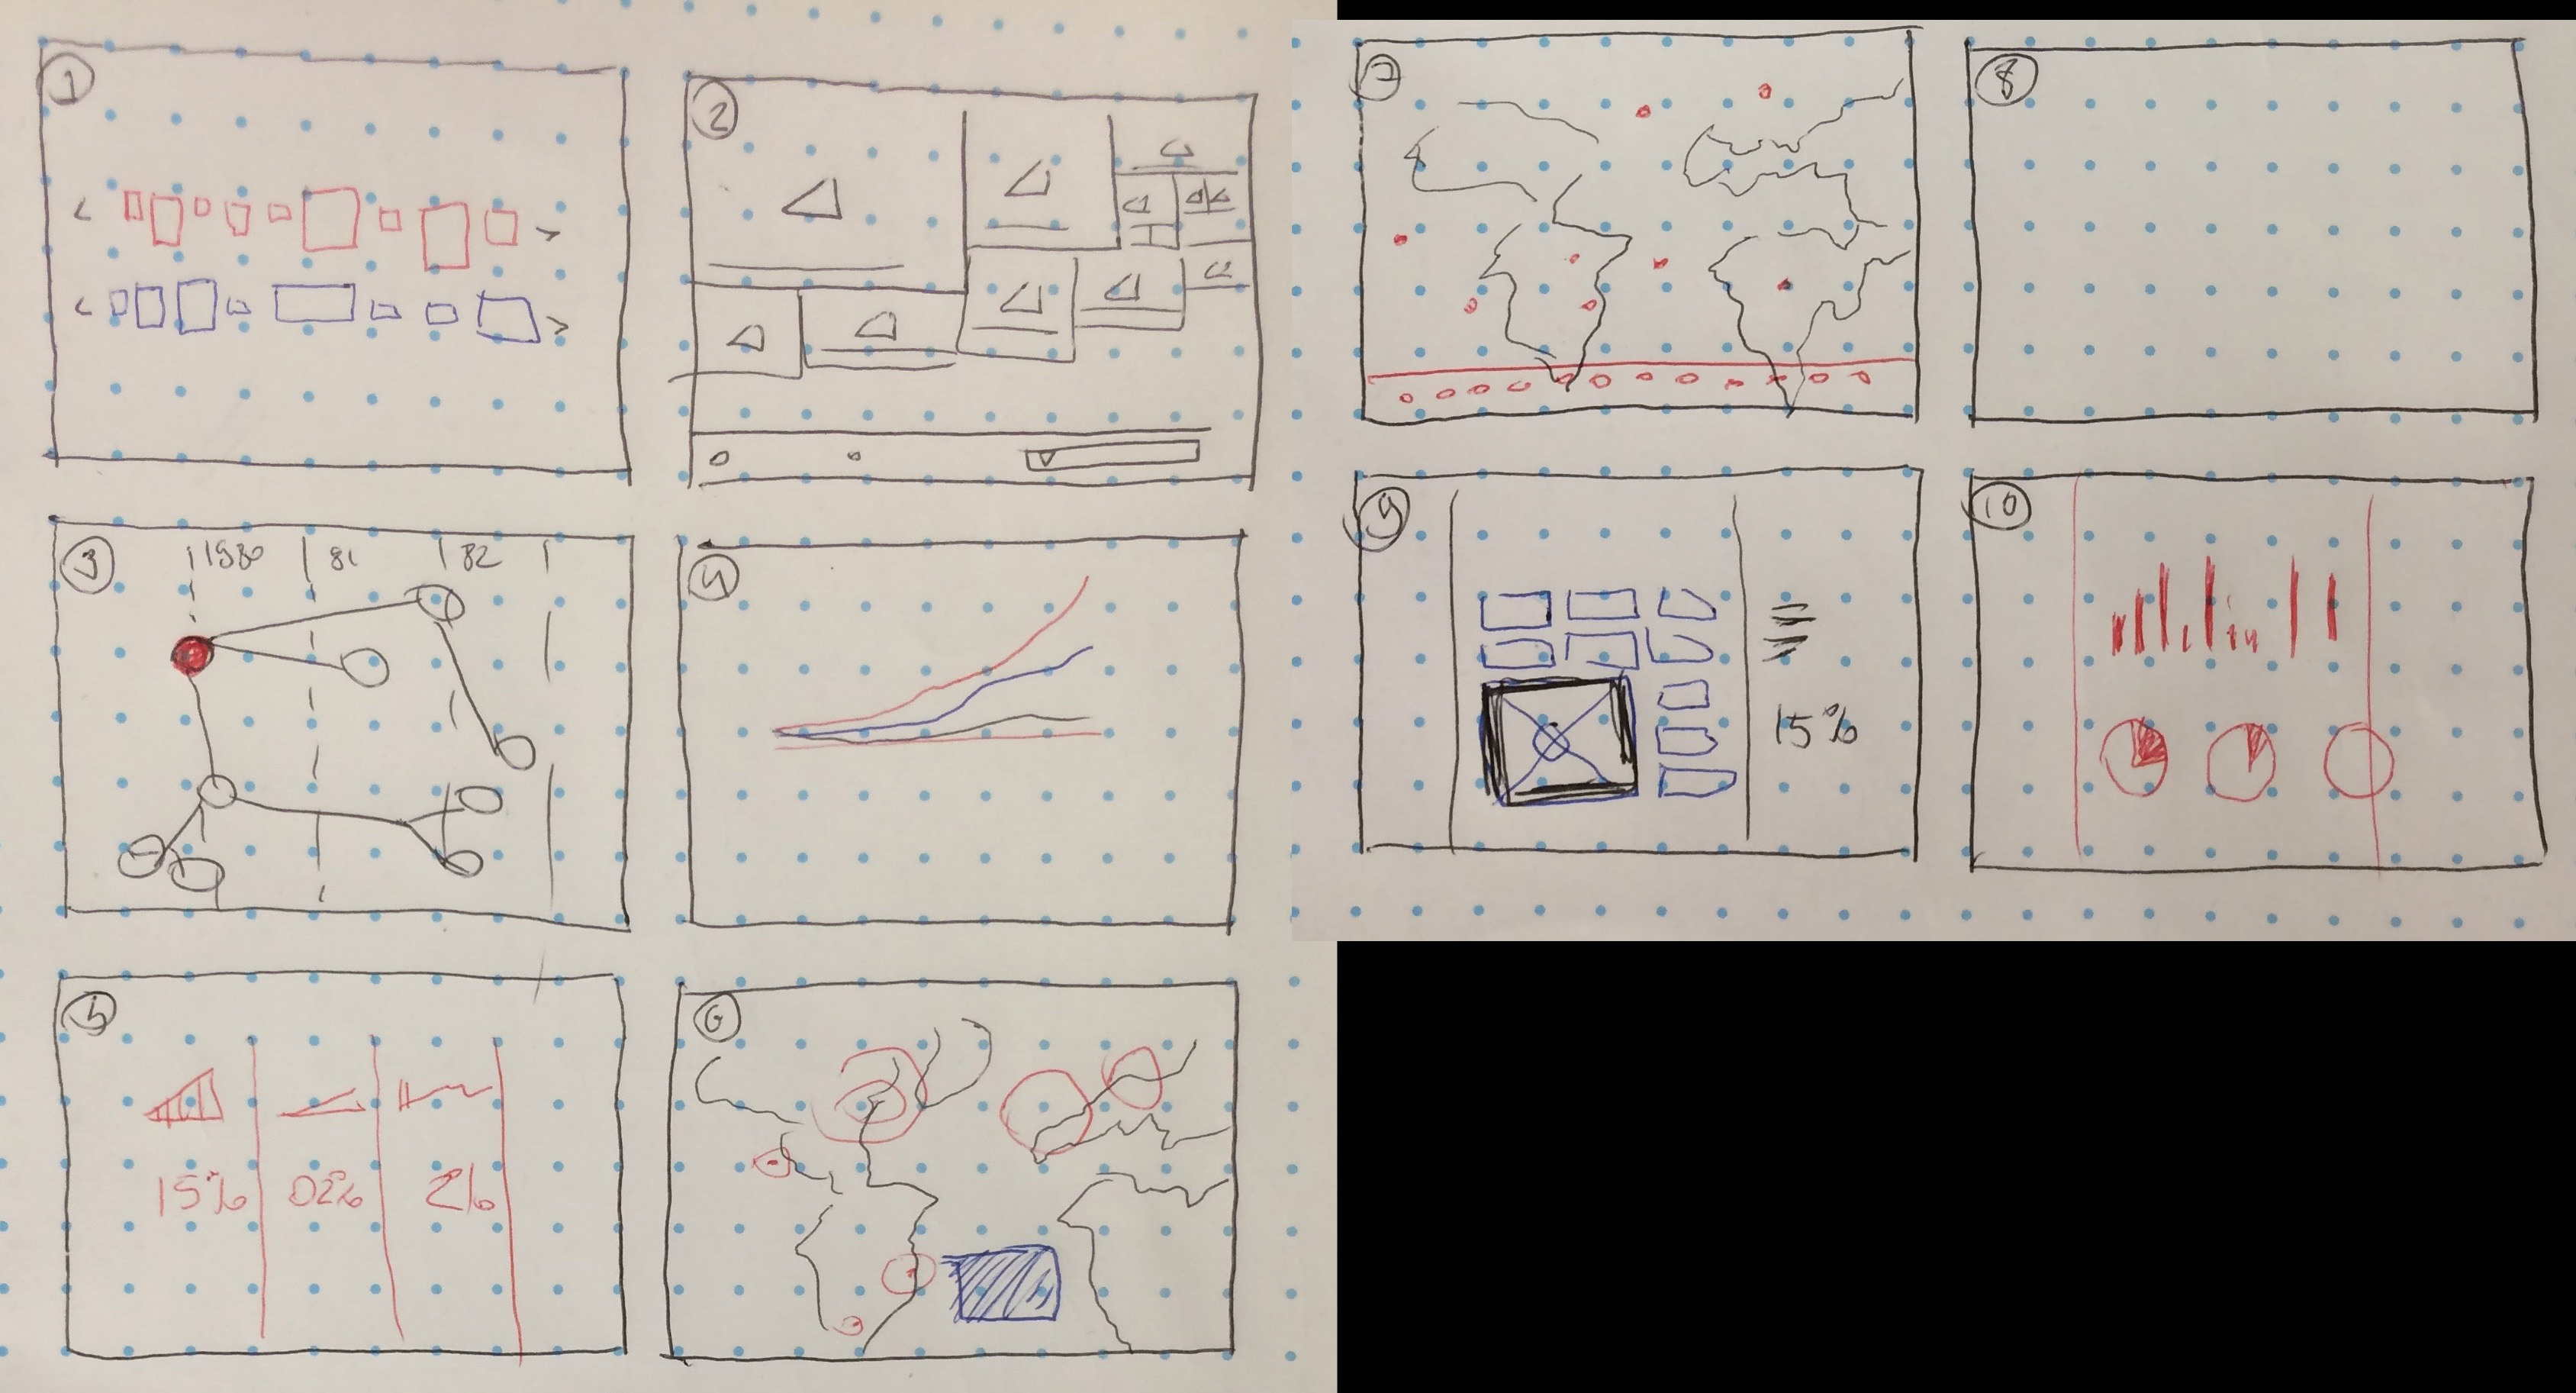 1
2
3
1980 81 82
4
5
15% 02% 2%
6
7
8
9
15%
10